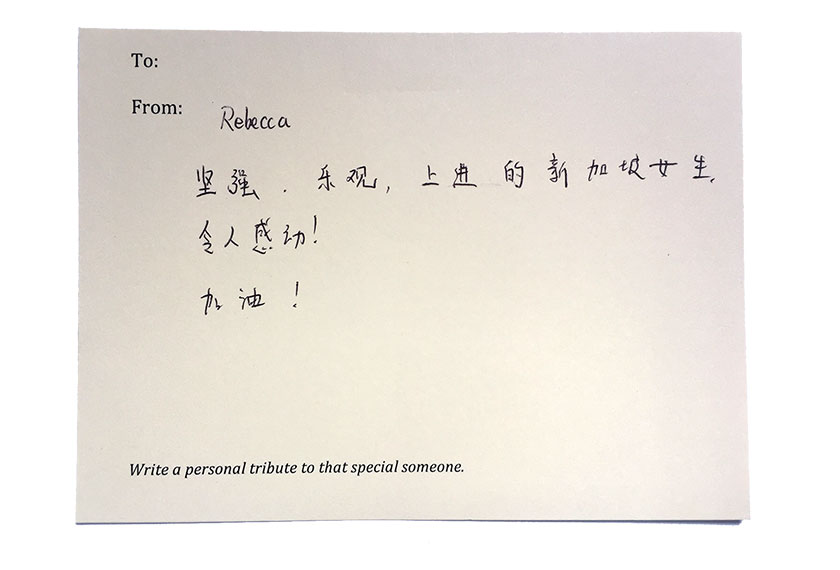 To:
From: Rebecca
坚强. 乐观, 上进 的 新加坡女生,
令人感动!
加油!
Write a personal tribute to that special someone.